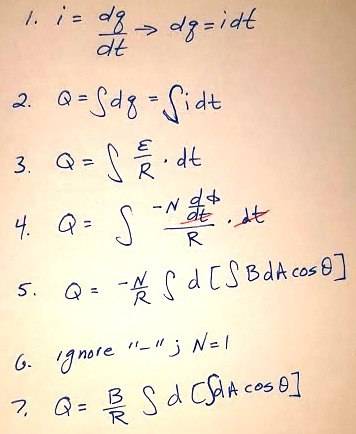 1. i = dq/dt → dq = idt
2. Q = ∫dq = ∫idt
3. Q = ∫ ℰ/R · dt
4. Q = ∫ (-N dϕ/dt)/R · dt
5. Q = -N/R ∫ d[∫BdA cos θ]
6. ignore "-"; N=1
7. Q = B/R ∫ d[∫dA cos θ]